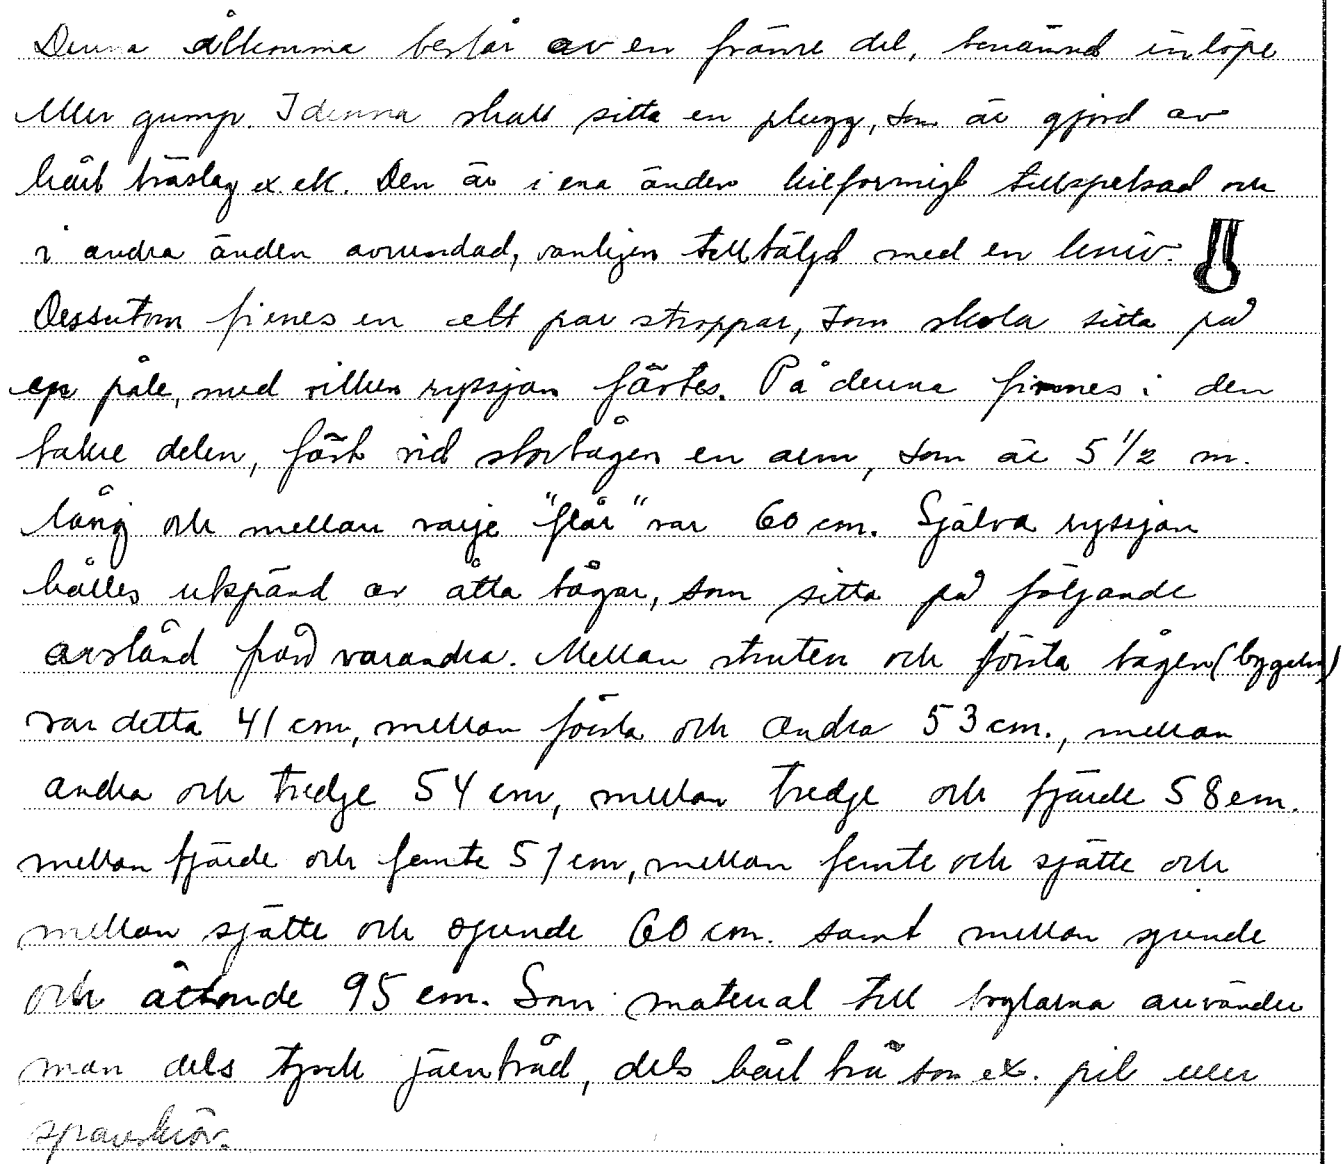 Denna ålhomma består av en främre del, benämnd inlöpe
eller gump. I denna skall sitta en plugg, som är gjord av
hårt träslag ex. ek. Den är i ena änden kilformigt tillspetsad och
i andra änden avrundad, vanligen tilltäljd med en kniv.
Dessutom finnes en ett par stroppar, som skola sitta på
en påle, med vilken ryssjan fästes. På denna finnes i den
bakre delen, fäst vid storbågen en arm, som är 5 1/2 m.
lång och mellan varje "flår" var 60 cm. Själva ryssjan
hålles utspänd av åtta bågar, som sitta på följande
avstånd från varandra. Mellan struten och första bågen (bygeln)
var detta 41 cm, mellan första och andra 53 cm., mellan
andra och tredje 54 cm, mellan tredje och fjärde 58 cm.
mellan fjärde och femte 57 cm, mellan femte och sjätte och
mellan sjätte och sjunde 60 cm. samt mellan sjunde
och åttonde 95 cm. Som material till byglarna använder
man dels tjock järntråd, dels hårt trä som ex. pil eller